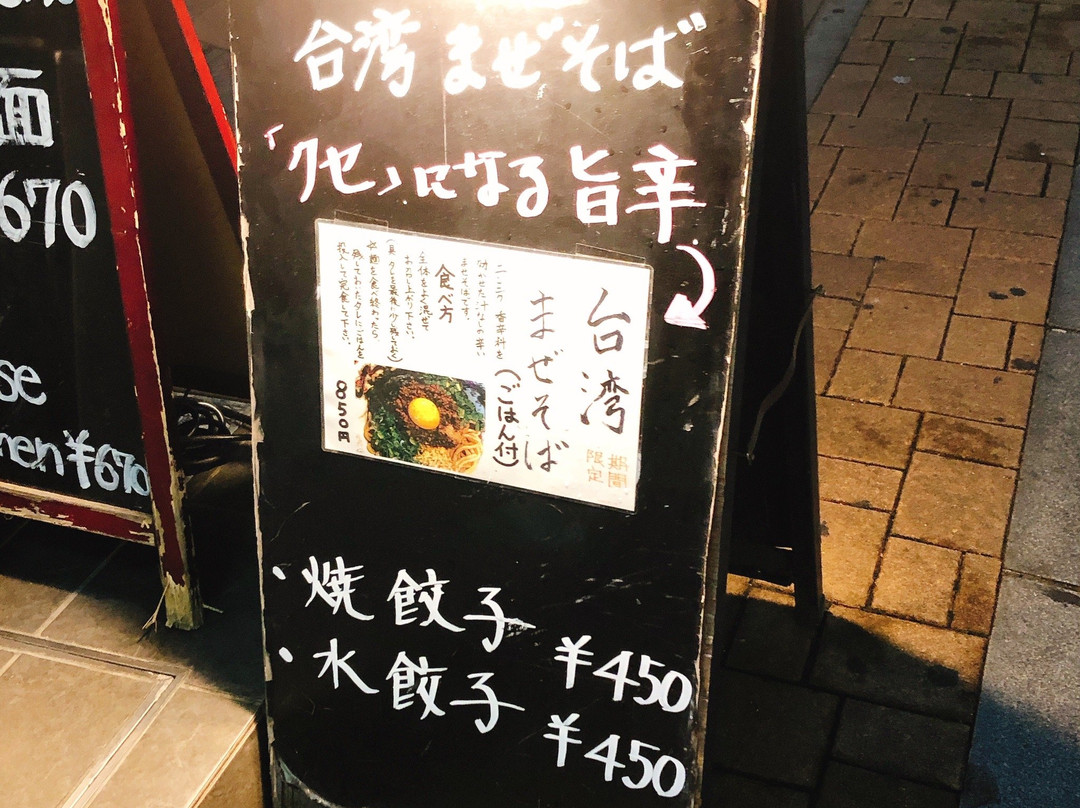 面
670
se
men ¥670
台湾まぜそば
「クセ」になる旨辛
台湾
まぜそば
(ごはん付)
期間
限定
ニンニク、香辛料を
効かせた汁なしの辛い
まぜそばです。
食べ方
全体をよく混ぜて
お召し上がり下さい。
(具、タレを最後に少し残しておく)
※麺を食べ終わったら
残しておいたタレにごはんを
投入して完食して下さい。
850円
・焼餃子 ¥450
・水餃子 ¥450